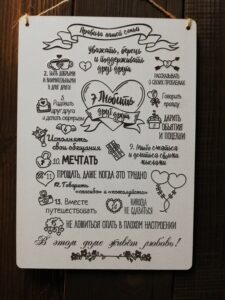 Правила нашей семьи
Уважать, беречь
и поддерживать
друг друга
2. Быть добрыми
и внимательными
друг к другу
Рассказывать
о своих проблемах
7 Любить
друг друга
Говорить
правду
Радовать
друг друга
и делать сюрпризы
Дарить
объятия
и поцелуи
Исполнять
свои обещания
10. Мечтать
11 Прощать, даже когда это трудно
12. Говорить
«спасибо» и «пожалуйста»
13. Вместе
путешествовать
Никогда
не сдаваться
Не ложиться спать в плохом настроении
В этом доме живёт любовь!